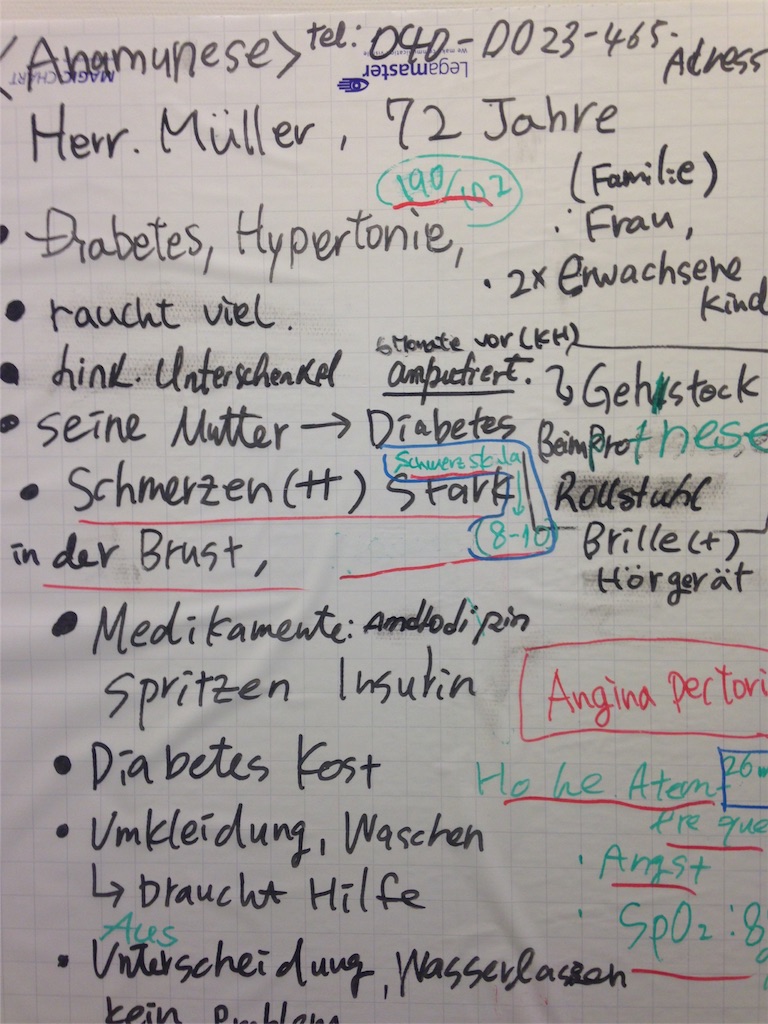 <Anamunese> tel: 040-D023-465.
Adress
MAGIC CHART
Legamaster
Herr. Müller, 72 Jahre
190/102
(Familie)
Frau,
• 2x Erwachsene
Kind
• Diabetes, Hypertonie,
• raucht viel.
6 Monate vor (KH)
• link. Unterschenkel amputiert.
↳ Gehstock
• seine Mutter → Diabetes
Beim Prothese
Schmerzskala
↓
(8-10)
• Schmerzen (++) Stark
in der Brust,
Rollstuhl
Brille (+)
Hörgerät
• Medikamente: Amdlodipin
Spritzen Insulin
Angina Pectori
• Diabetes Kost
Hohe Atem
26
frequ
• Umkleidung, Waschen
↳ braucht Hilfe
• Angst
• SpO2: 8
Aus
• Unterscheidung, Wasserlassen
kein Problem